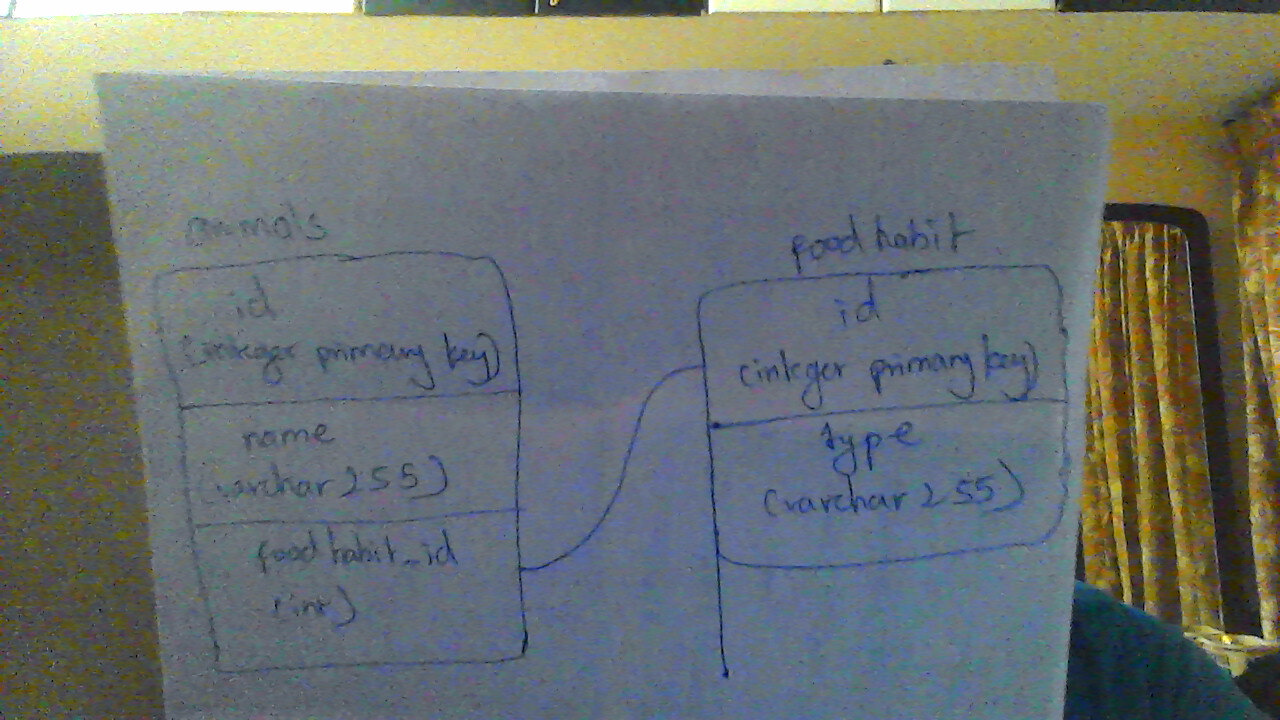 animals
id
(integer primary key)
name
(varchar 255)
foodhabit_id
(int)
foodhabit
id
(integer primary key)
type
(varchar 255)